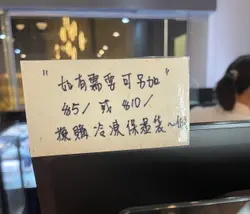 "如有需要可另加"
$5/ 或 $10/
換購冷凍保溫袋~